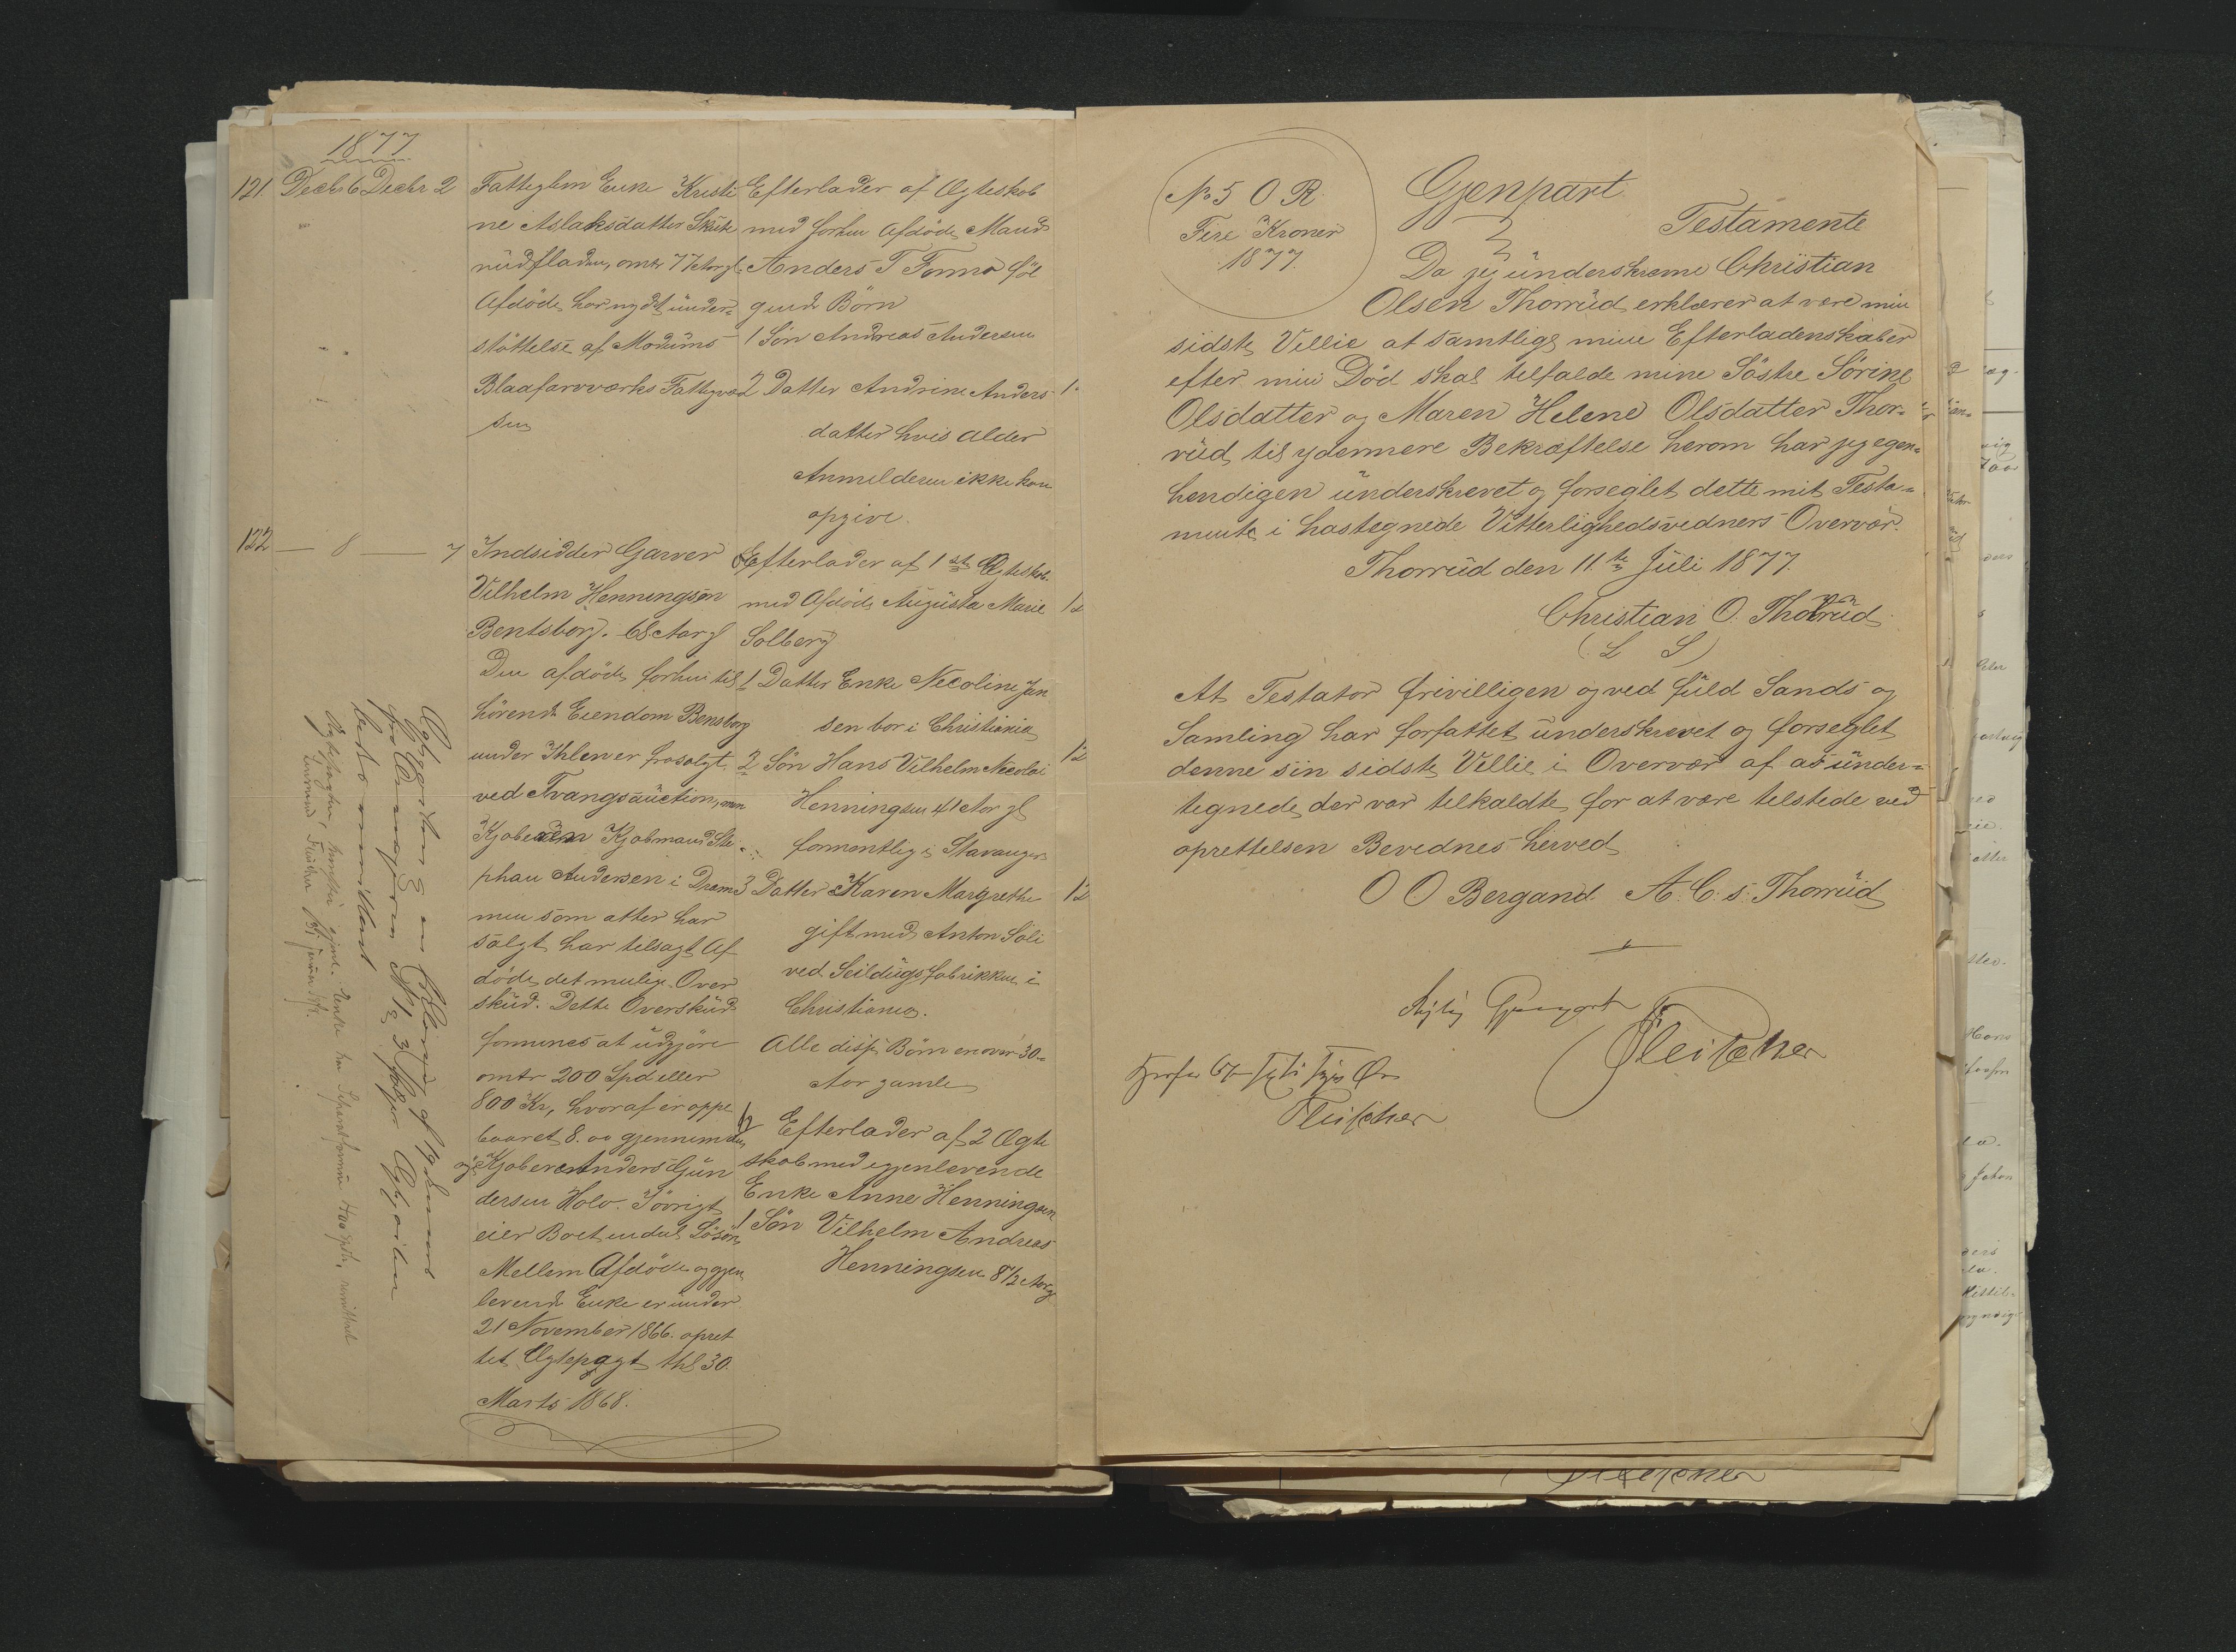 1877
121 Decbr 6 Decbr 2
Fattiglem Enke Kristi
ne Aslaksdatter Skute
rüdfladen, omtr 77 Aar gl.
Afdöde har nydt ünder=
stöttelse af Modüms
Blaafarveværks Fattigvæ
sen
Efterlader af Ægteskab
med forhen Afdöde Mand
Anders T Formo föl
gende Börn
1 Sön Andreas Andersen
2 Datter Andrine Anders
datter hvis Alder
Anmelderen ikke kan
opgive.
122 — 8 — 7
Indsidder Garver
Vilhelm Henningsen
Bentsborg. 68 Aar gl
Den afdöde forhen til
hörende Eiendom Bensborg
under Ihlen er frasolgt
ved Tvangsaüction, men
Kjöberen Kjöbmand Ste
phan Andersen i Dram
men som atter har
solgt har tilsagt Af
döde det mulige Over
sküd. Dette Oversküd
formenes at üdgjöre
omtr 200 Spd eller
800 Kr, hvoraf er oppe
baaret 8.00 gjennem den
ny Kjöber Anders Gün
dersen Holo. Iövrigt
eier Boet endel Lösöre
Mellem Afdöde og gjen
levende Enke er ünder
21 November 1866. opret
tet Ægtepagt thl 30.
Marts 1868.
Efterlader af 1ste Ægteskab
med Afdöde Augüsta Marie
Solberg
1 Datter Enke Nicoline Jan
sen bor i Christiania
2 Sön Hans Vilhelm Nicolai
Henningsen 41 Aar gl
formentlig i Stavanger
3 Datter Karen Margrethe
gift med Anton Söli
ved Seildügsfabrikken i
Christiania.
Alle disse Börn er over 30
Aar gamle
Efterlader af 2 Ægte
skab med igjenlevende
Enke Anne Henningsen
1 Sön Vilhelm Andreas
Henningsen 8½ Aar g
No 5 O R.
Fire Kroner
1877.
Gjenpart
Testamente
Da jeg ünderskrevne Christian
Olsen Thorrüd erklærer at være min
sidste Villie at samtlige mine Efterladenskaber
efter min Död skal tilfalde mine Söstre Sörine
Olsdatter og Maren Helene Olsdatter Thor=
rüd, til ydermere Bekræftelse herom har jeg egen=
hendigen ünderskrevet og forseglet dette mit Testa=
mente i hostegnede Vitterlighedsvidners Overvær.
Thorrüd den 11.te Jüli 1877.
Christian O. Thorrüd
(L S)
At Testator frivilligen og ved füld Sands og
Samling har forfattet ünderskrevet og forseglet
denne sin sidste Villie i Overvær af as ünder=
tegnede, der var tilkaldte for at være tilstede ved
oprettelsen Bevidnes herved
O O Bergand. A. C. s. Thorrüd
Rigtig Gjenpart
Fleischer
Fleischer